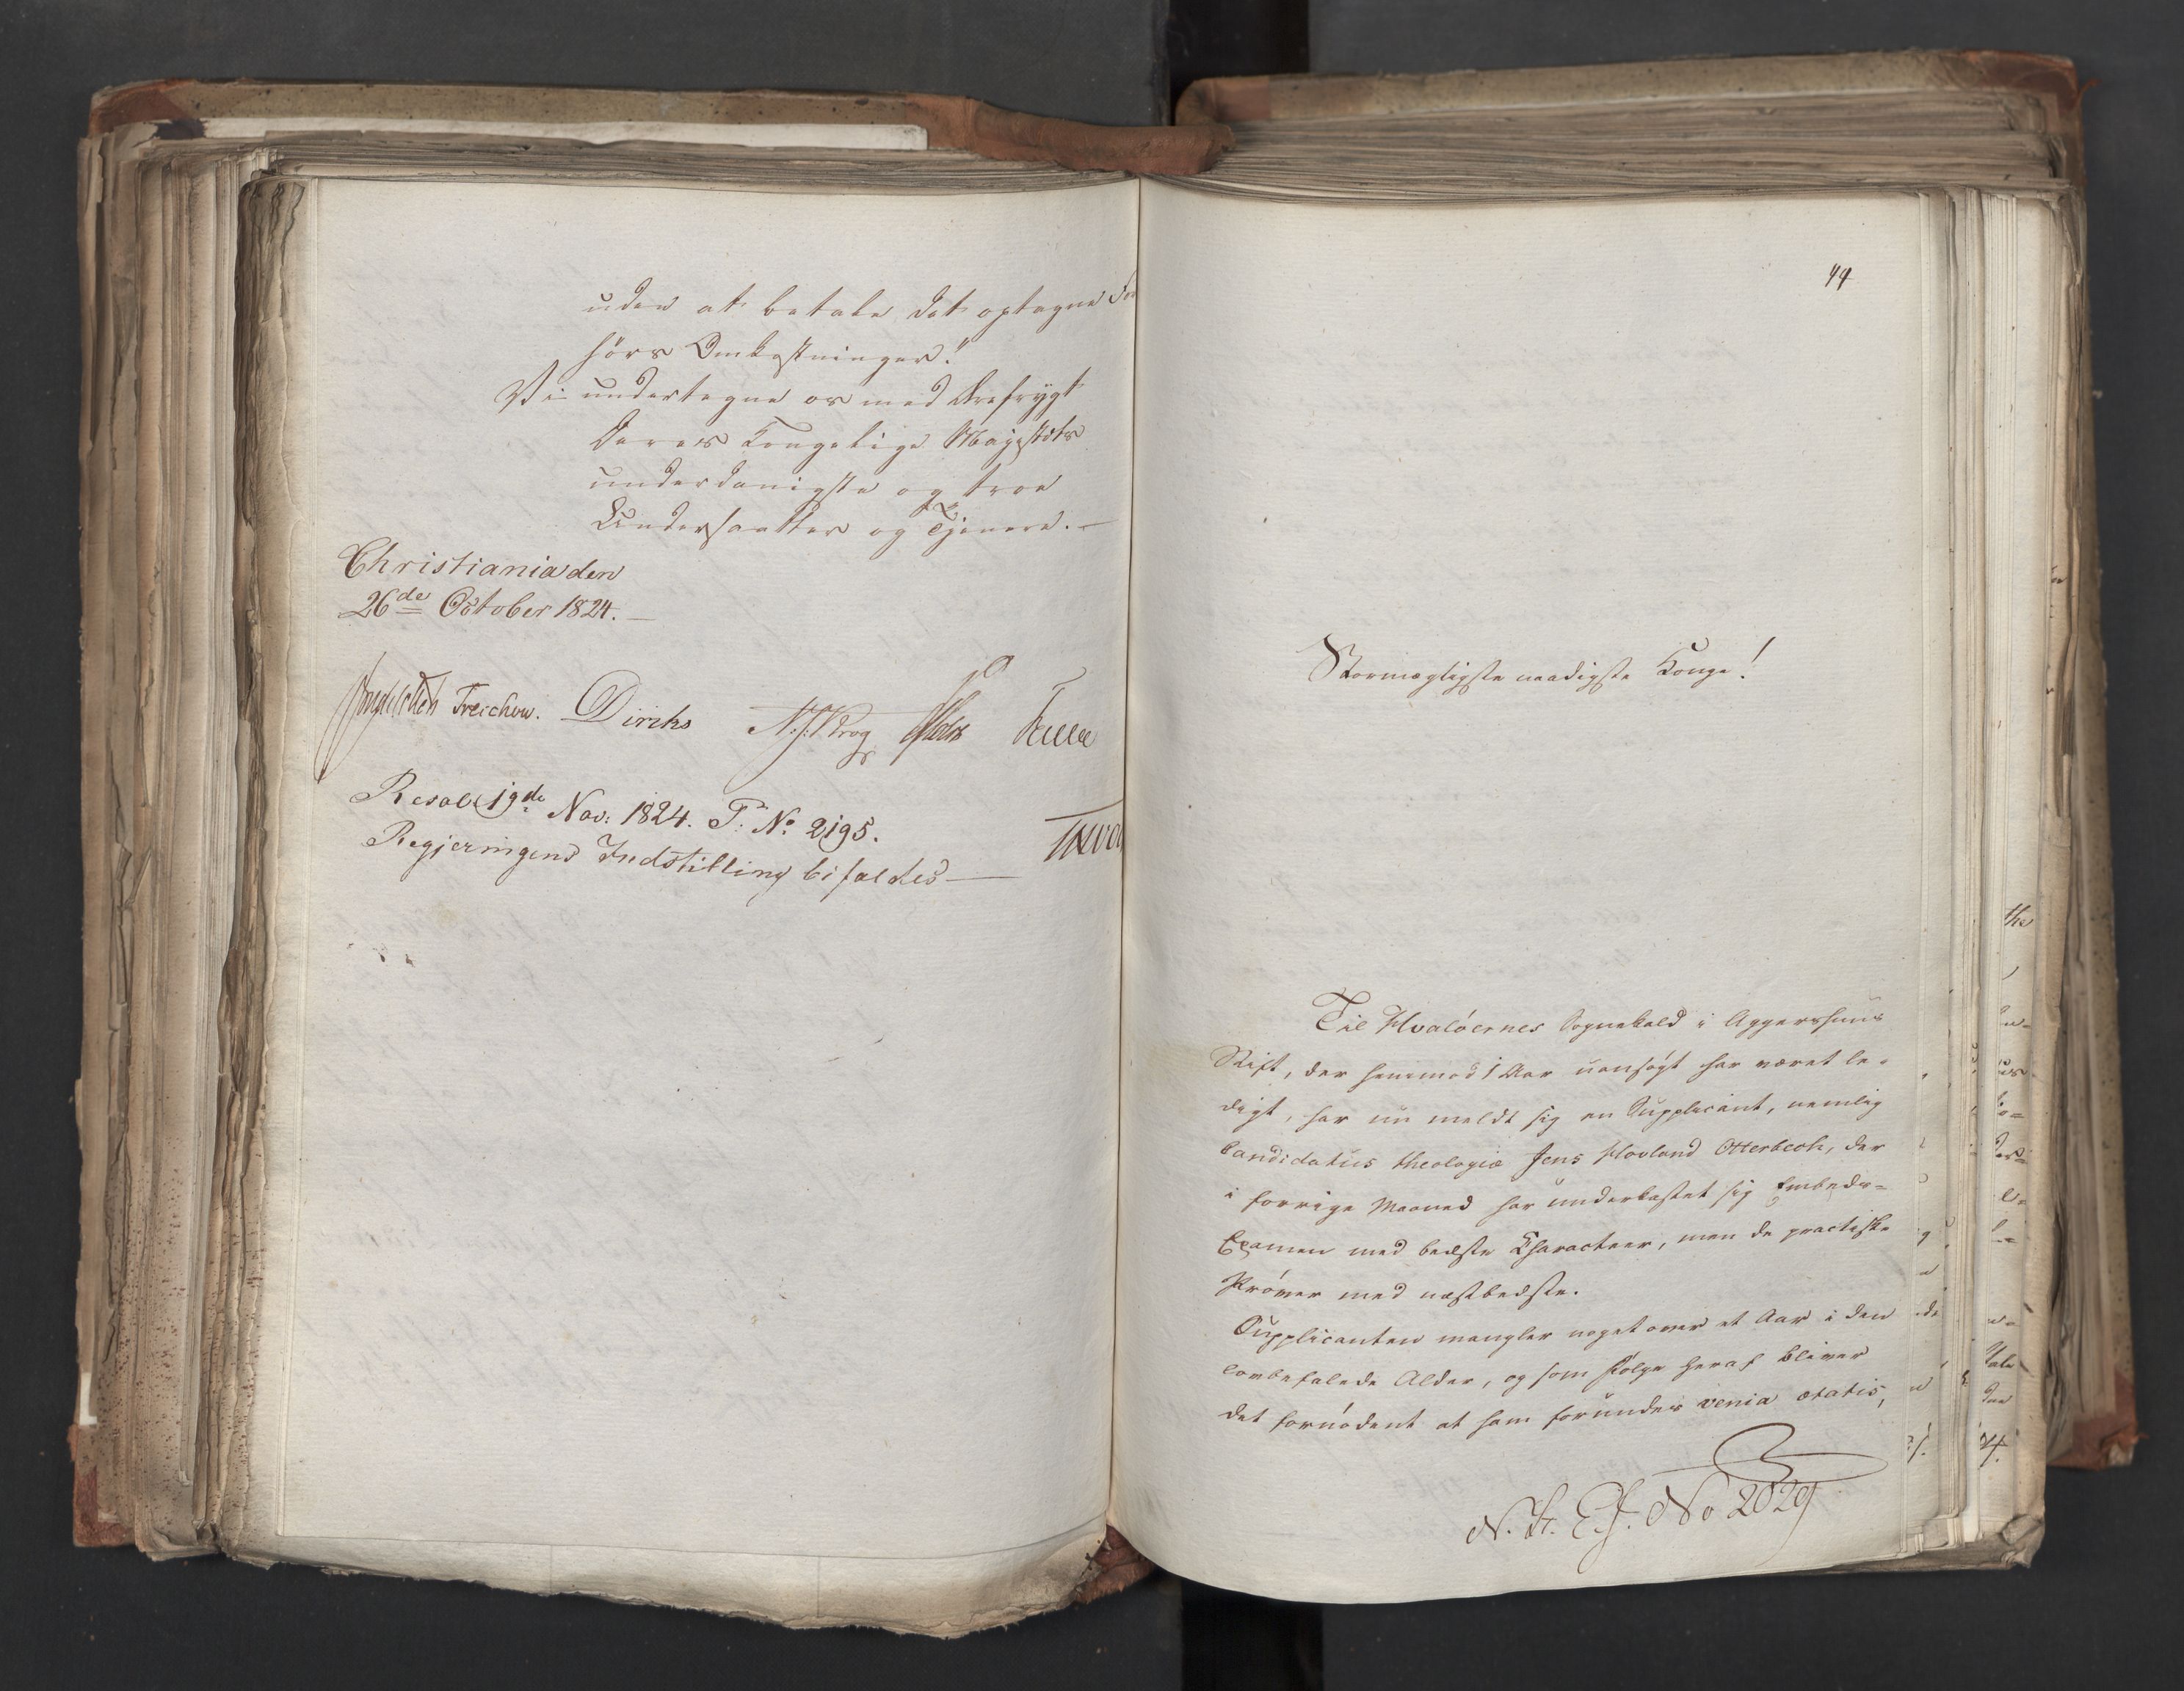 uden at betale det optagne For
hörs Omkostninger."
Vi undertegne os med Ærefrygt
Deres Kongelige Majestæts
underdanigste og troe
Undersaatter og Tjenere. —
Christiania den
26de October 1824. —
Treschow. Diriks N. J. Krog Falbe
Resol: 19de Nov: 1824. P: No 2195.
Regjeringens Indstilling bifaldes —
44
Stormægtigste naadigste Konge!
Til Hvalöernes Sognekald i Aggershuus
Stift, der henimod 1 Aar uansøgt har været le-
digt, har nu meldt sig en Supplicant, nemlig
Candidatus theologiæ Jens Hovland Otterbech, der
i forrige Maaned har underkastet sig Embeds-
Examen med bedste Characteer, men de practiske
Prøver med næstbedste.
Supplicanten mangler noget over et Aar i den
lovbefalede Alder, og som Følge heraf bliver
det fornödent at ham forundes venia ætatis,
No 2029